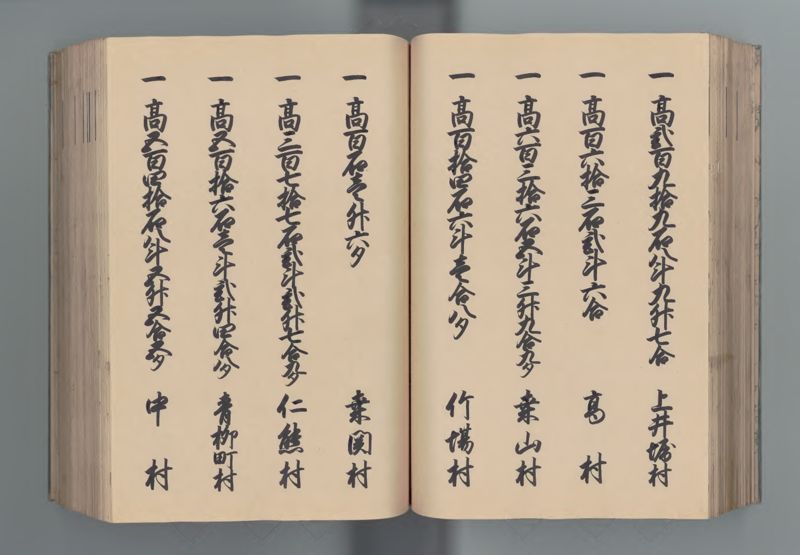 一 高弐百九拾九石八斗九升七合 上井堀村
一 高百六拾三石弐斗六合 高村
一 高六百三拾六石五斗三升九合九夕 桑山村
一 高百拾四石六斗壱合八夕 竹場村
一 高百石壱升六夕 桑関村
一 高三百七拾七石弐斗弐升七合九夕 仁熊村
一 高五百拾六石壱斗弐升四合八夕 青柳町村
一 高五百四拾石八斗五升五合五夕 中村